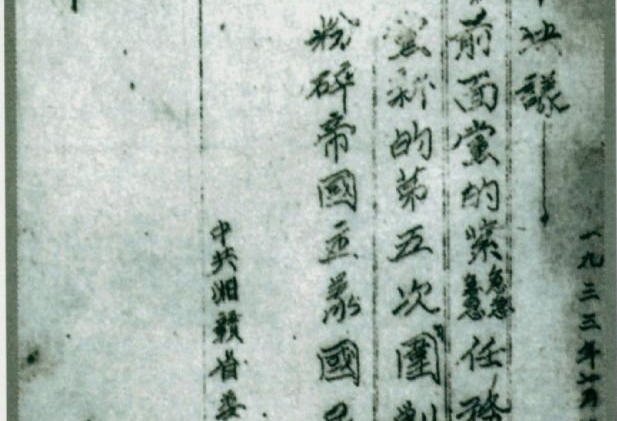 一九三三年七月
决議
前面黨的緊急任務
黨新的第五次圍剿
粉碎帝國主義國民
中共湘贛省委